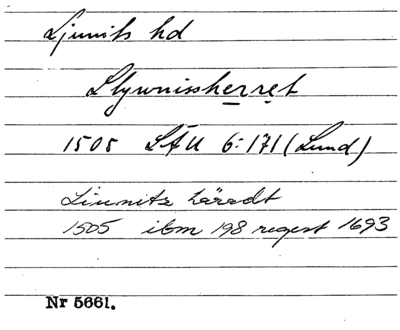 Ljunits hd
Llywnissherret
1505 LÄU 6:171 (Lund)
Liumitz häredt
1505 ibm 198 regest 1693
Nr 5661.